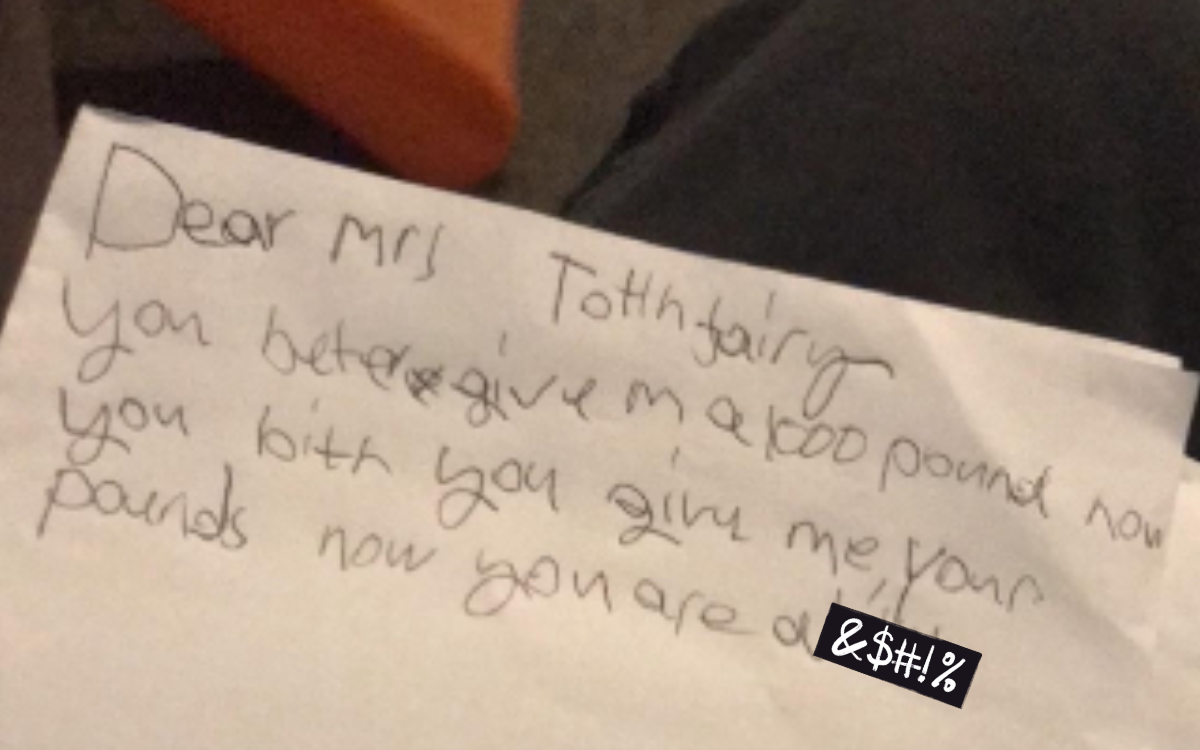 Dear Mrs Totthfairy
you beter give m a 1000 pound now
you bith you give me your
pounds now you are a
&$#!%